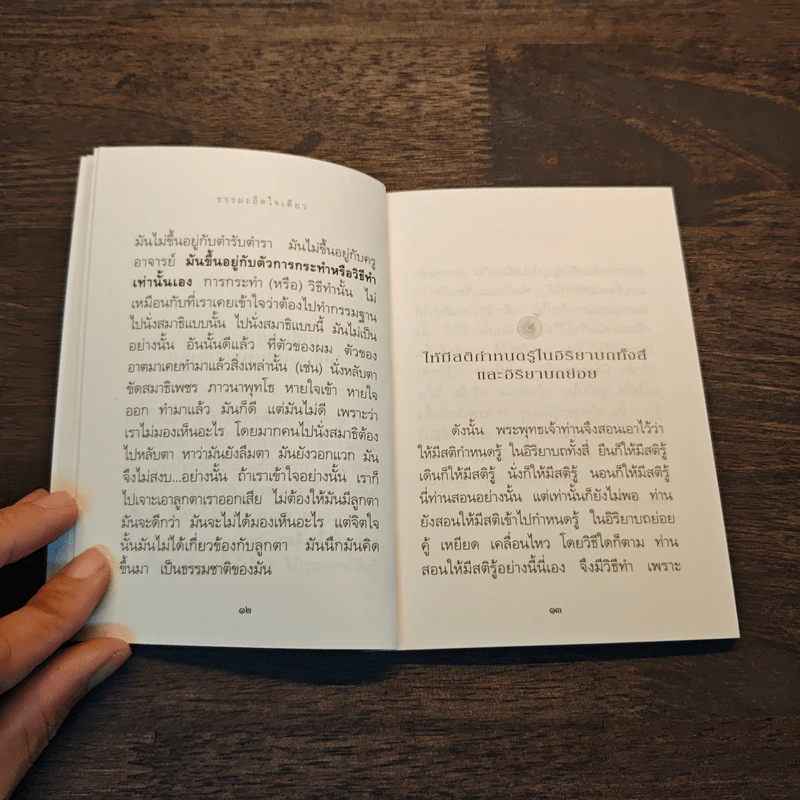 ธรรมะอึดใจเดียว
มันไม่ขึ้นอยู่กับตำรับตำรา มันไม่ขึ้นอยู่กับครู
อาจารย์ มันขึ้นอยู่กับตัวการกระทำหรือวิธีทำ
เท่านั้นเอง การกระทำ (หรือ) วิธีทำนั้น ไม่
เหมือนกับที่เราเคยเข้าใจว่าต้องไปทำกรรมฐาน
ไปนั่งสมาธิแบบนั้น ไปนั่งสมาธิแบบนี้ มันไม่เป็น
อย่างนั้น อันนั้นดีแล้ว ที่ตัวของผม ตัวของ
อาตมาเคยทำมาแล้วสิ่งเหล่านั้น (เช่น) นั่งหลับตา
ขัดสมาธิเพชร ภาวนาพุทโธ หายใจเข้า หายใจ
ออก ทำมาแล้ว มันก็ดี แต่มันไม่ดี เพราะว่า
เราไม่มองเห็นอะไร โดยมากคนไปนั่งสมาธิต้อง
ไปหลับตา หาว่ามันยังลืมตา มันยังวอกแวก มัน
จึงไม่สงบ...อย่างนั้น ถ้าเราเข้าใจอย่างนั้น เราก็
ไปเจาะเอาลูกตาเราออกเสีย ไม่ต้องให้มันมีลูกตา
มันจะดีกว่า มันจะไม่ได้มองเห็นอะไร แต่จิตใจ
นั้นมันไม่ได้เกี่ยวข้องกับลูกตา มันนึกมันคิด
ขึ้นมา เป็นธรรมชาติของมัน
๑๒
ให้มีสติกำหนดรู้ในอิริยาบถทั้งสี่
และอิริยาบถย่อย
ดังนั้น พระพุทธเจ้าท่านจึงสอนเอาไว้ว่า
ให้มีสติกำหนดรู้ ในอิริยาบถทั้งสี่ ยืนก็ให้มีสติรู้
เดินก็ให้มีสติรู้ นั่งก็ให้มีสติรู้ นอนก็ให้มีสติรู้
นี่ท่านสอนอย่างนั้น แต่เท่านั้นก็ยังไม่พอ ท่าน
ยังสอนให้มีสติเข้าไปกำหนดรู้ ในอิริยาบถย่อย
คู้ เหยียด เคลื่อนไหว โดยวิธีใดก็ตาม ท่าน
สอนให้มีสติรู้อย่างนี้นี่เอง จึงมีวิธีทำ เพราะ
๑๓